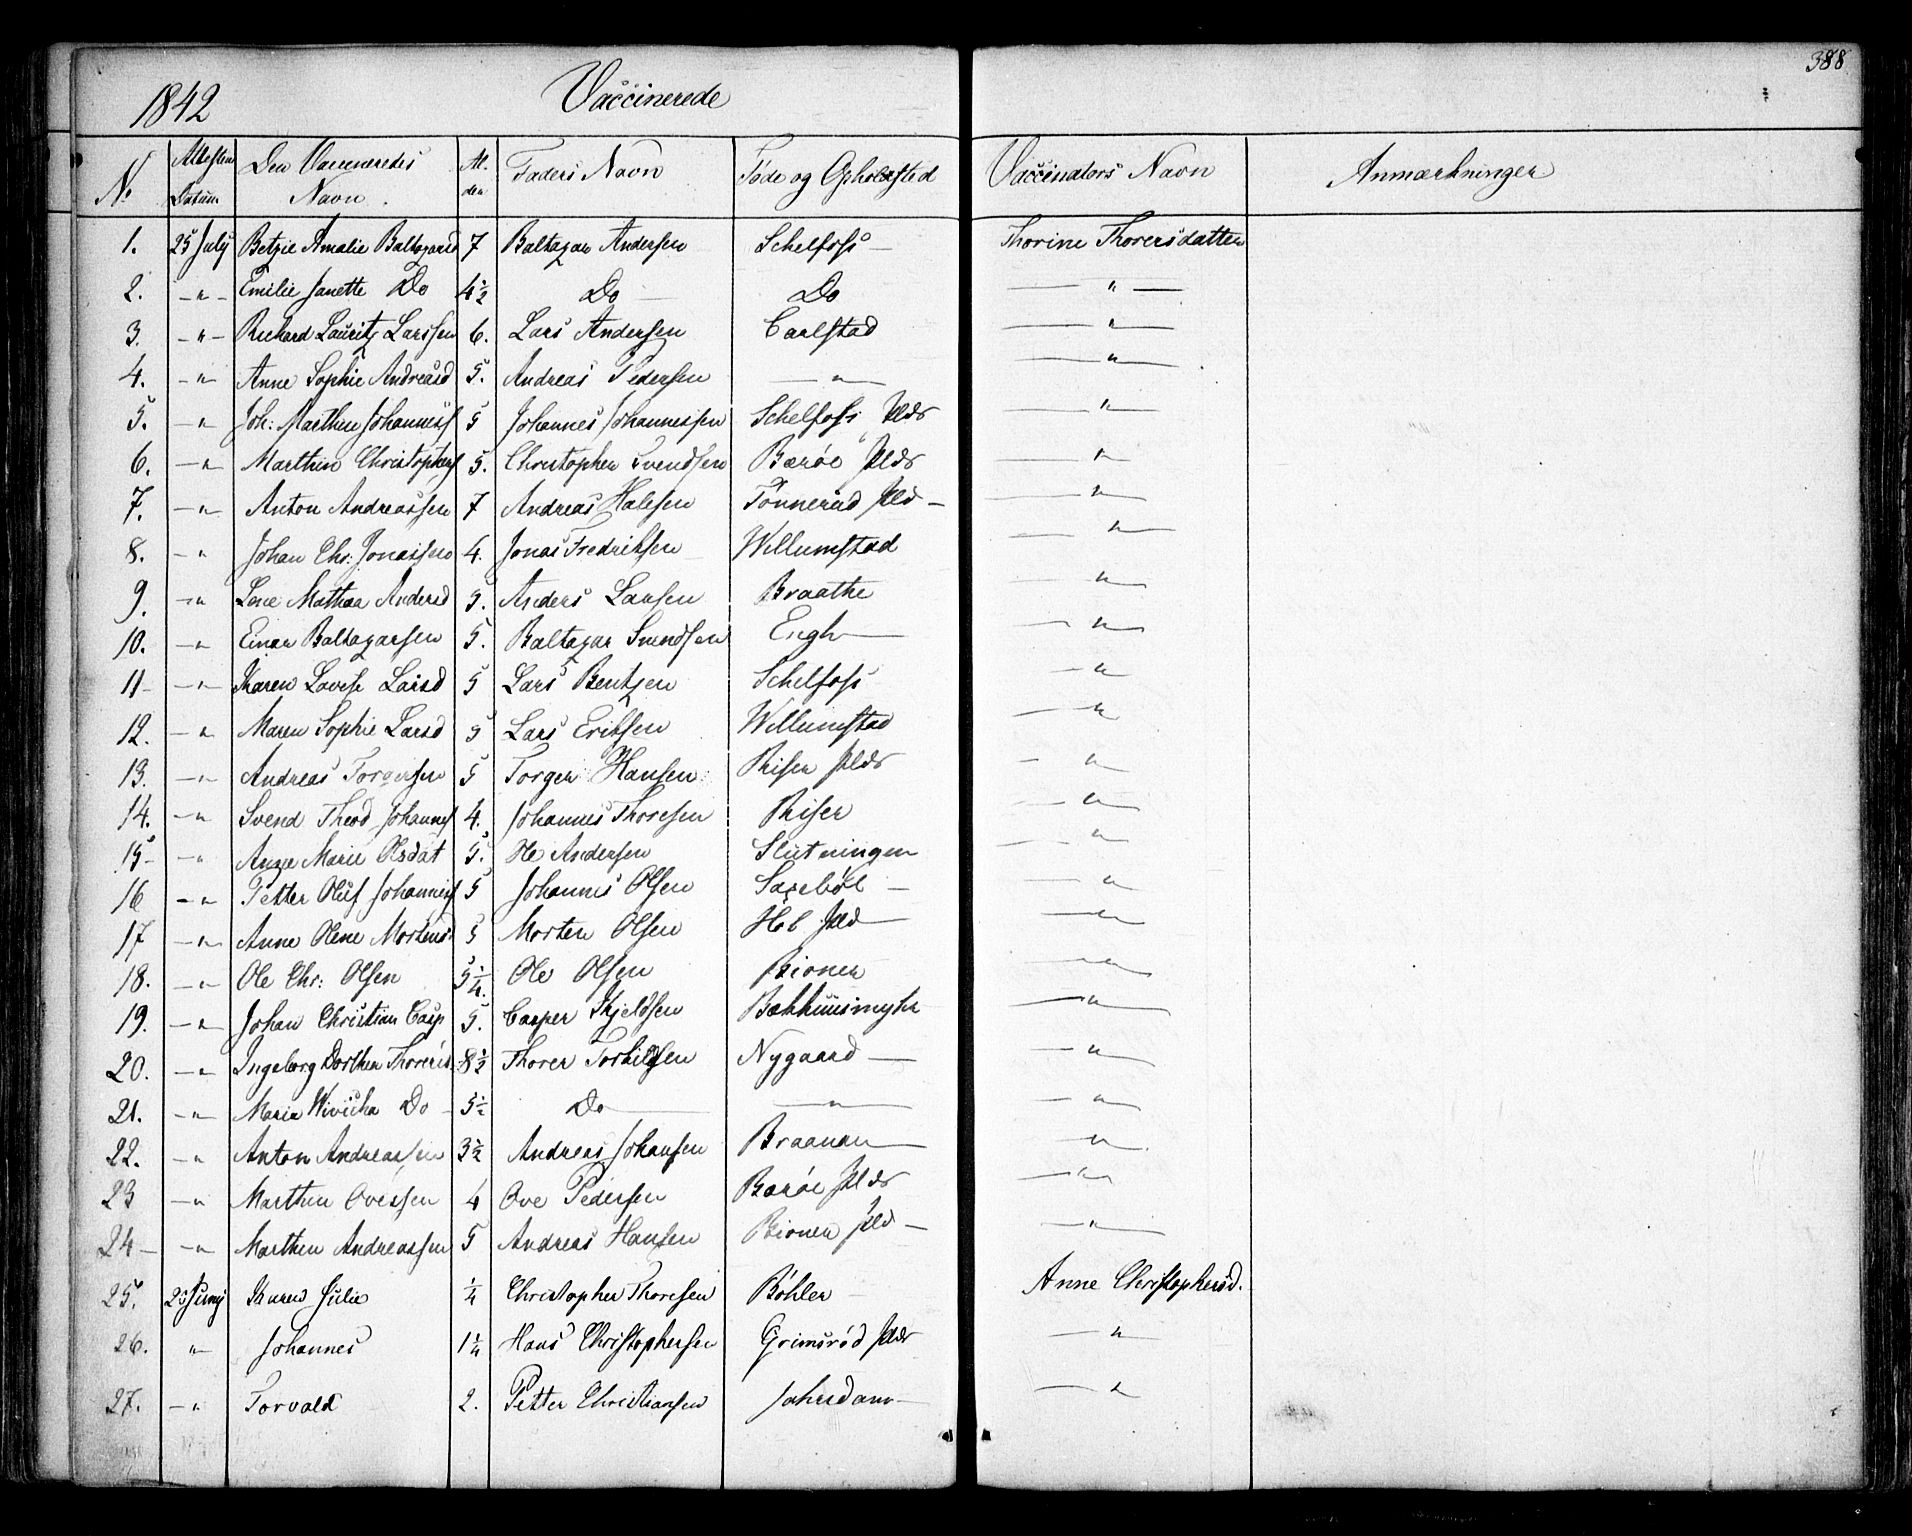 388
1842 Vaccinerede
No Attestens Datum Den Vaccineredes Navn Al- der Faders Navn Føde og Opholdssted Vaccinators Navn Anmærkninger
1. 25 July Betzie Amalie Baltazarsd 7 Baltazar Andersen Schelfoss – Thorine Thorersdatter
2. –"– Emilie Janette Do 4½ Do – Do – " –
3. –"– Richard Lauritz Larssen 6. Lars Andersen Carlstad – " –
4. –" Anne Sophie Andreasd 5. Andreas Pedersen – " – – " –
5. –" Joh: Marthin Johanness 5 Johannes Johannessen Schelfoss Plds – " –
6. –" Marthin Christophers 5. Christopher Svendsen Barøe Plds – " –
7. –" Anton Andreassen 7 Andreas Halesen Tonnerud Pld – – " –
8. –" Johan Chr: Jonassen 4. Jonas Fredriksen Willumstad – " –
9. –" Lene Mathea Andersd 5. Anders Larsen Braathe – " –
10. –" Einar Baltazarsen 5. Baltazar Svendsen Engh – – " –
11 –" Karen Lovise Larsd 5 Lars Bentzen Schelfoss – " –
12. –" Maren Sophie Larsd 5 Lars Eriksen Willumstad – " –
13. –" Andreas Torgersen 5 Torger Hansen Riser Plds – " –
14. –" Svend Theod Johanness 4. Johannes Thoresen Riser – " –
15 –" Anne Marie Olsdat 5. Ole Andersen Slutningen – " –
16 –" Petter Oluf Johanness 5 Johannes Olsen Saxebøl – – " –
17 –" Anne Olene Mortensd 5 Morten Olsen Hol Pld – – " –
18. –" Ole Chr: Olsen 5¼. Ole Olsen Bioner – " –
19. –" Johan Christian Casp 5. Casper Kjeldsen Bækhuusmyhr – " –
20. –" Ingeborg Dorthea Thorersd. 8½ Thorer Torkildsen Nygaard – – " –
21. –" Maria Wivicha Do 5½ Do – " – – " –
22. –" Anton Andreassen 3½ Andreas Johansen Braanan – – " –
23 –" Marthin Ovessen 4 Ove Pedersen Barøe Plds – " –
24 –" Marthin Andreassen 5 Andreas Hansen Bioner Pld – – " –
25. Juny Karen Julie ¼ Christopher Thoresen Bøhler – Anne Christophersd.
26. " Johannes 1¼ Hans Christophersen Grimsrød Plds – " –
27. –" Torvald 2. Petter Christiansen – " –